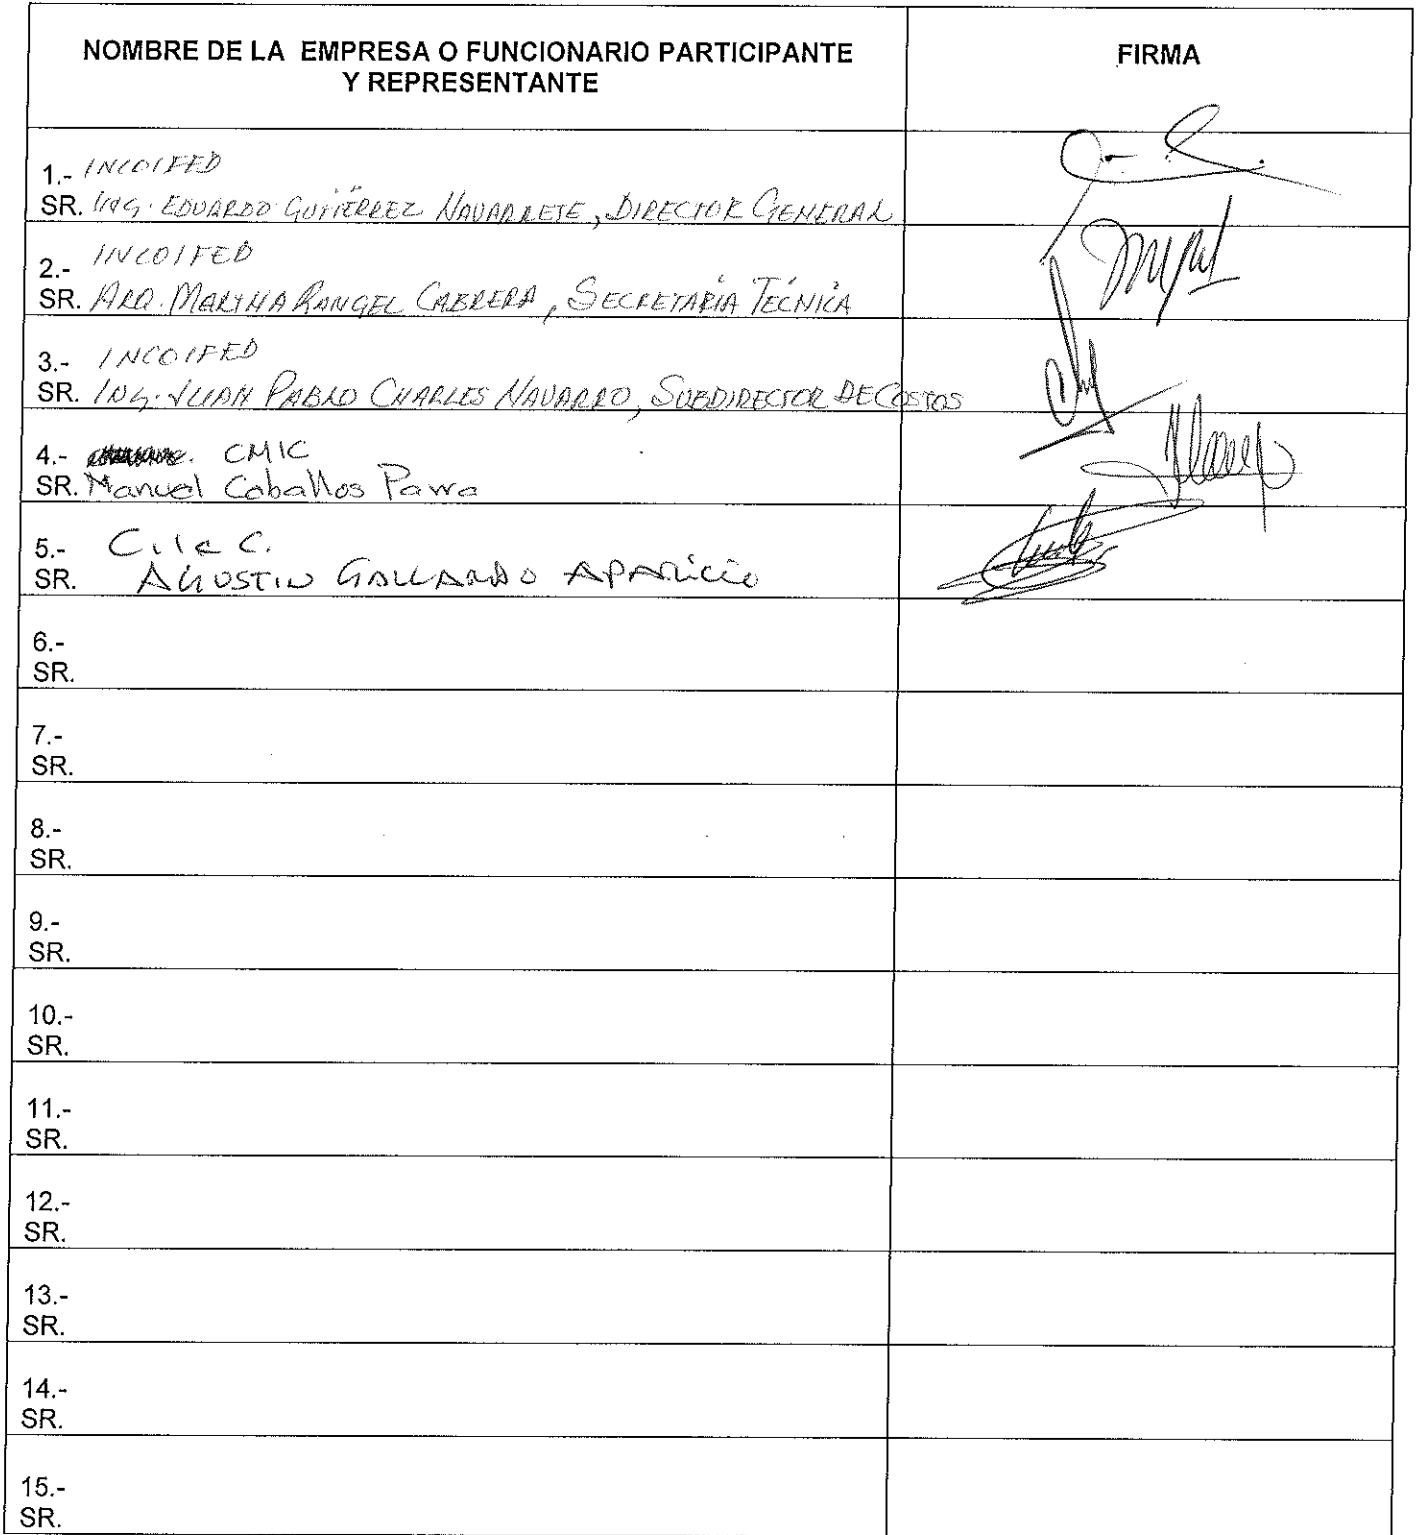 NOMBRE DE LA EMPRESA O FUNCIONARIO PARTICIPANTE
Y REPRESENTANTE
FIRMA
1.- INCOIFED
SR. ING. EDUARDO GUTIÉRREZ NAVARRETE, DIRECTOR GENERAL
2.- INCOIFED
SR. ARQ. MARTHA RANGEL CABRERA, SECRETARIA TÉCNICA
3.- INCOIFED
SR. ING. JUAN PABLO CHARLES NAVARRO, SUBDIRECTOR DE COSTOS
4.- CMIC
SR. Manuel Caballos Parra
5.-
SR. AGUSTIN GALLARDO APARICIO
6.-
SR.
7.-
SR.
8.-
SR.
9.-
SR.
10.-
SR.
11.-
SR.
12.-
SR.
13.-
SR.
14.-
SR.
15.-
SR.